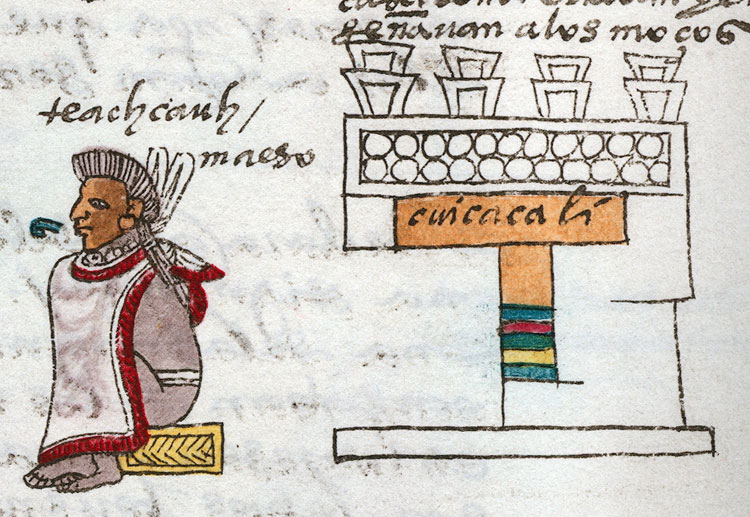 señavan alos moços
teachcauh/
maeso
cuicacali